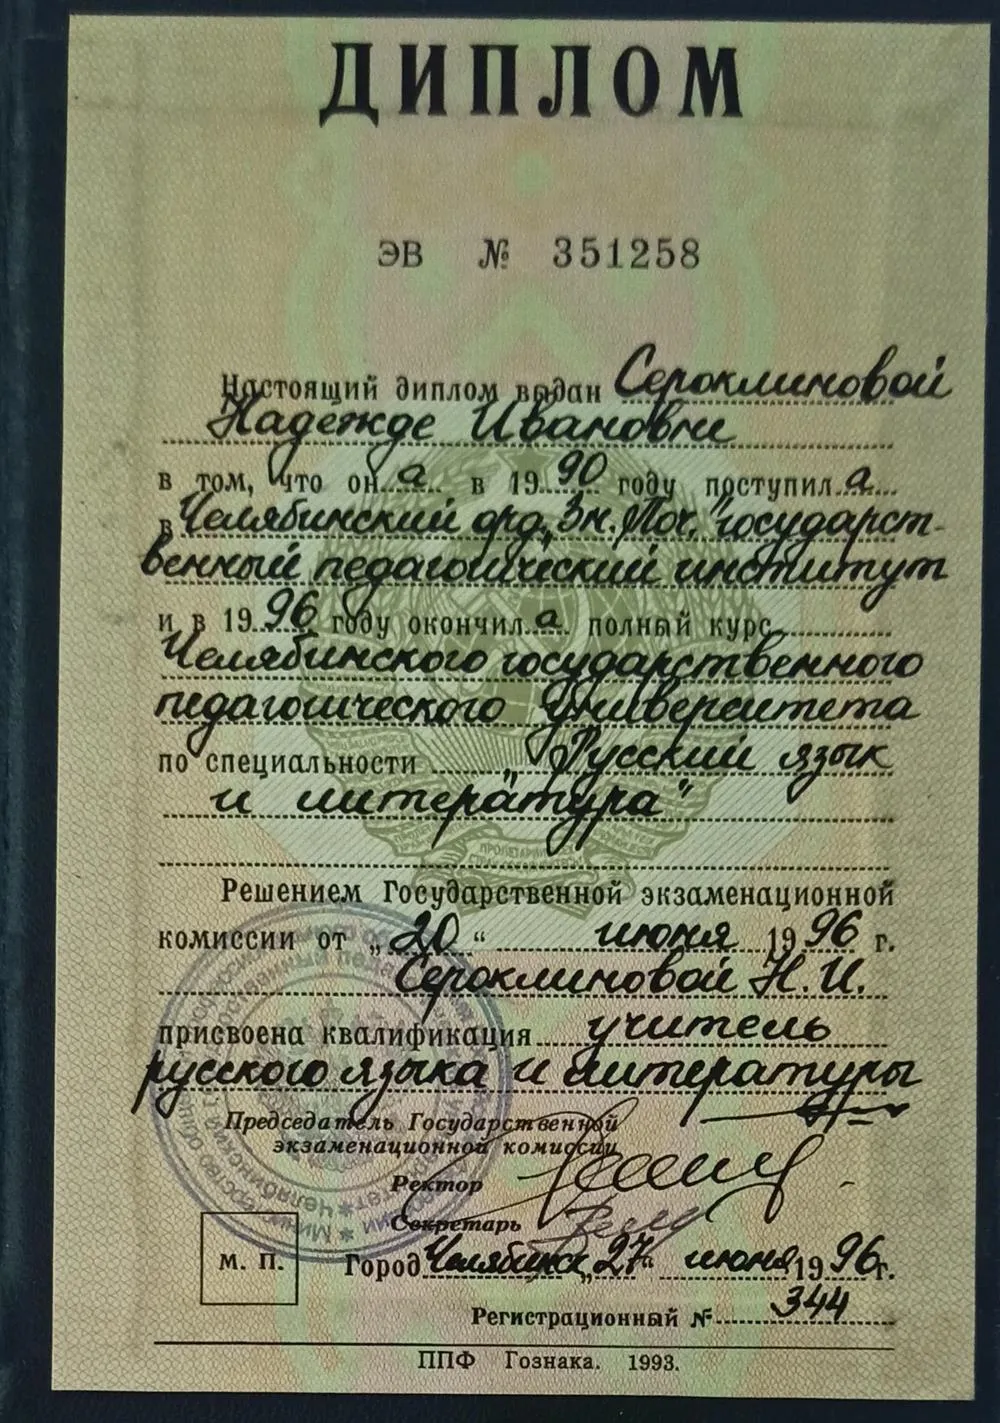 ДИПЛОМ
ЭВ № 351258
Настоящий диплом выдан Сероклиновой
Надежде Ивановне
в том, что он а в 19 90 году поступил а
в Челябинский орд. „Зн. Поч.“ государст-
венный педагогический институт
и в 19 96 году окончил а полный курс
Челябинского государственного
педагогического Университета
по специальности „Русский язык
и литература“
Решением Государственной экзаменационной
комиссии от „20“ июня 19 96 г.
Сероклиновой Н. И.
присвоена квалификация учитель
русского языка и литературы
Председатель Государственной
экзаменационной комиссии
Ректор
Секретарь
М. П.
Город Челябинск „27“ июня 19 96 г.
Регистрационный № 344
ППФ Гознака. 1993.